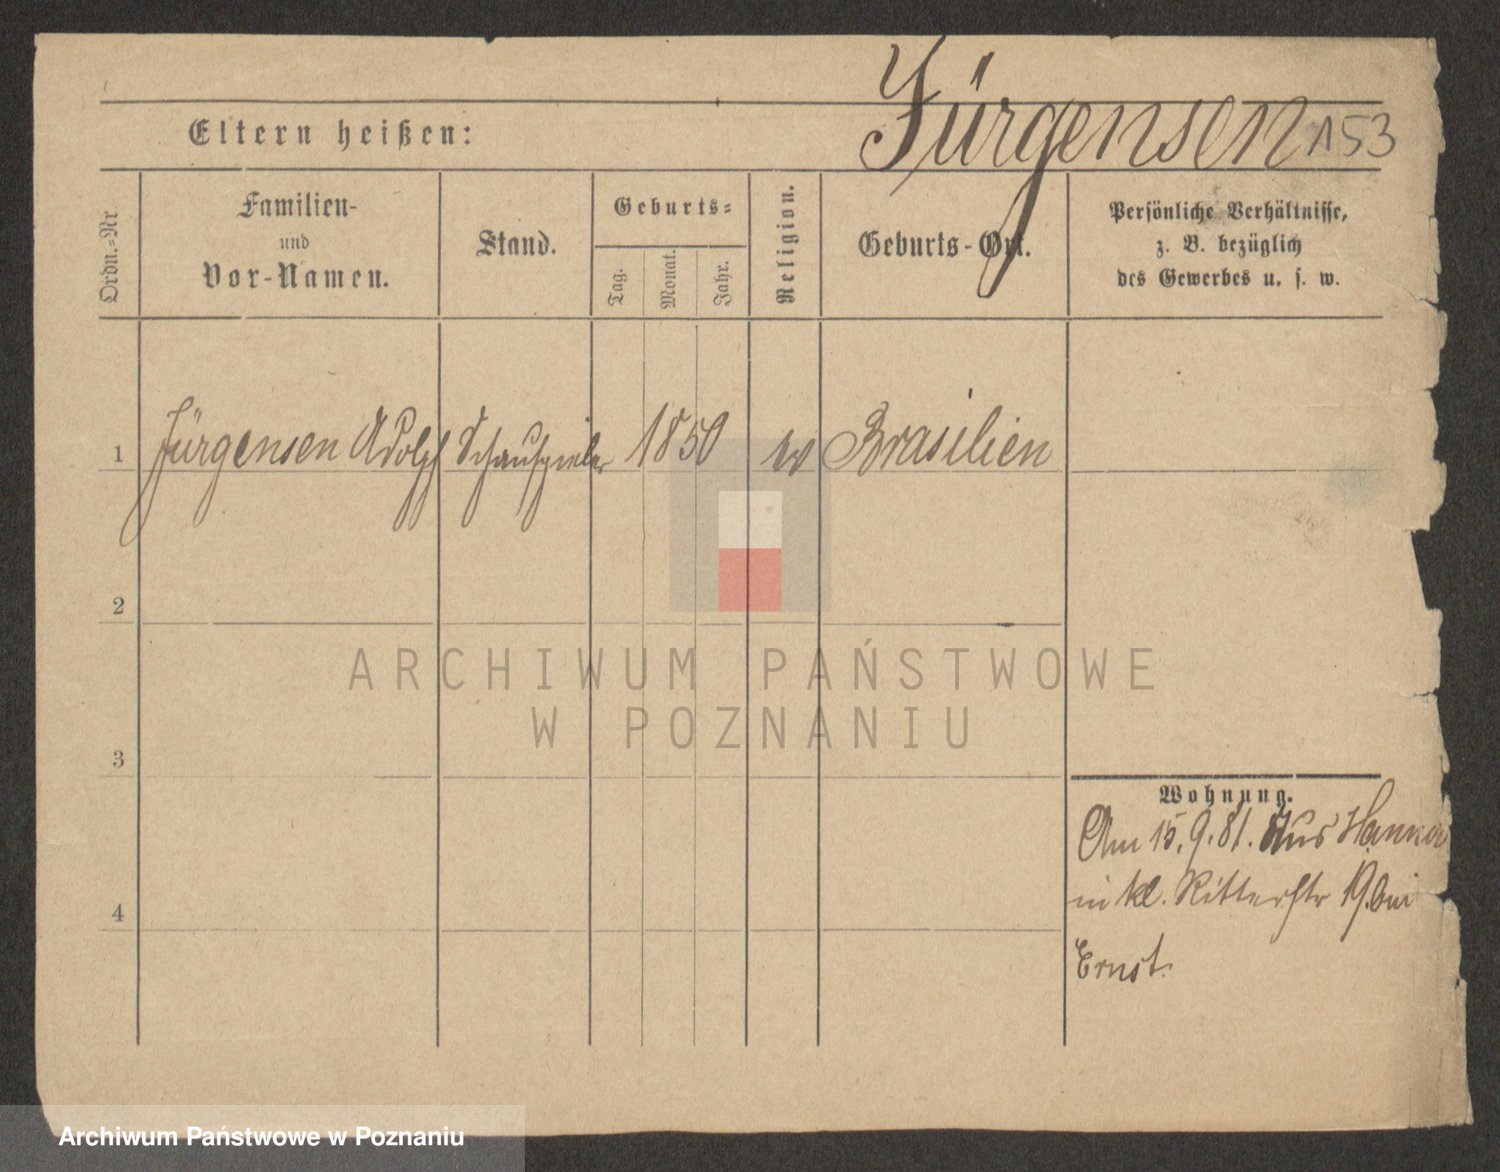 Jürgensen 153
Eltern heißen:
Ordn.=Nr
Familien-
und
Vor-Namen.
Stand.
Geburts=
Tag.
Monat.
Jahr.
Religion.
Geburts-Ort.
Persönliche Verhältnisse,
z. B. bezüglich
des Gewerbes u. s. w.
1 Jürgensen Adolph Schauspieler 1850 Brasilien
2
3
4
Wohnung.
Am 15.9.81. Aus
in kl. Ritterstr 19. bei
Ernst.
ARCHIWUM PAŃSTWOWE
W POZNANIU
Archiwum Państwowe w Poznaniu